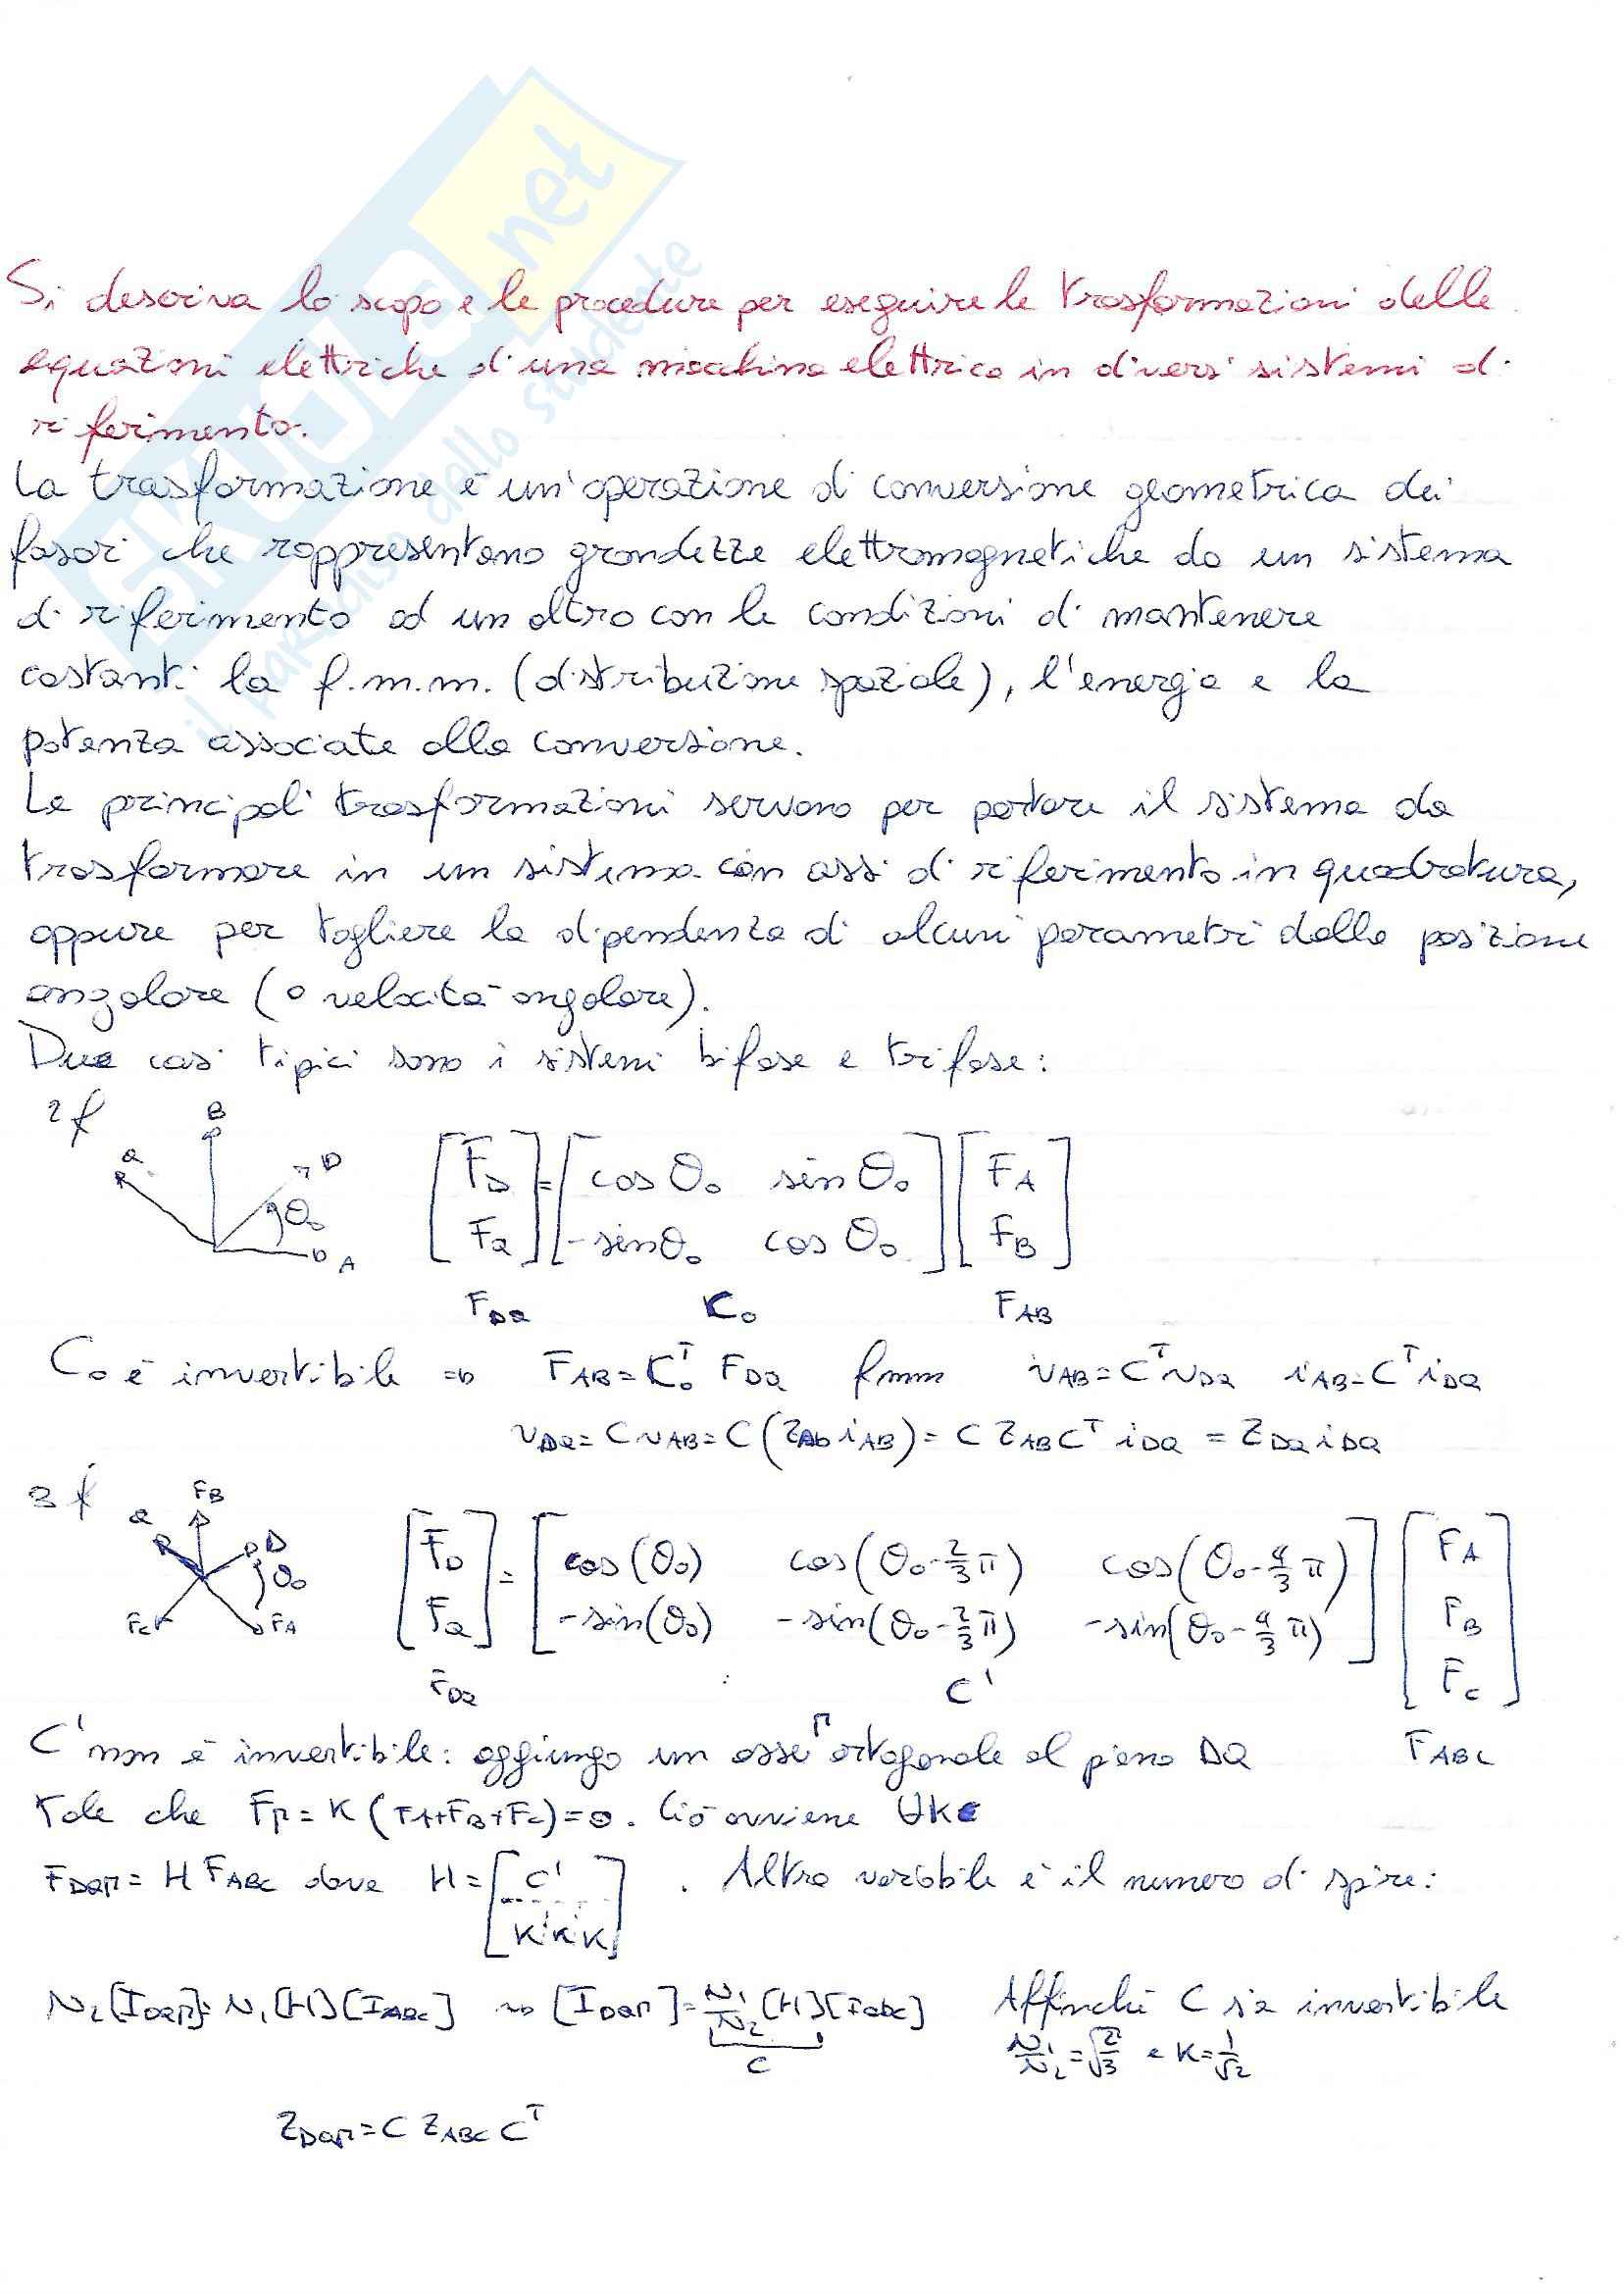 SKUOLA.net
il paradiso dello studente
Si descriva lo scopo e le procedure per eseguire le trasformazioni delle
equazioni elettriche di una macchina elettrica in diversi sistemi di
riferimento.
La trasformazione è un'operazione di conversione geometrica dei
fasori che rappresentano grandezze elettromagnetiche da un sistema
di riferimento ad un altro con le condizioni di mantenere
costanti la f.m.m. (distribuzione spaziale), l'energia e la
potenza associate alla conversione.
Le principali trasformazioni servono per portare il sistema da
trasformare in un sistema con assi di riferimento in quadratura,
oppure per togliere la dipendenza di alcuni parametri dalla posizione
angolare (o velocità angolare).
Due casi tipici sono i sistemi bifase e trifase:
2f
B
Q D θ₀ A
[F_D F_Q] = [cos θ₀ sin θ₀
-sin θ₀ cos θ₀] [F_A F_B]
F_DQ C₀ F_AB
C₀ è invertibile ⇒ F_AB = C₀ᵀ F_DQ fmm v_AB = Cᵀ v_DQ i_AB = Cᵀ i_DQ
v_DQ = C v_AB = C (Z_Ab i_AB) = C Z_AB Cᵀ i_DQ = Z_DQ i_DQ
3f
F_B Q D θ₀ F_C F_A
[F_D F_Q] = [cos(θ₀) cos(θ₀-2/3 π) cos(θ₀-4/3 π)
-sin(θ₀) -sin(θ₀-2/3 π) -sin(θ₀-4/3 π)] [F_A F_B F_C]
F_DQ C' F_ABC
C' non è invertibile: aggiungo un asse Π ortogonale al piano DQ
tale che F_Π = K (F_A+F_B+F_C) = 0. Ciò avviene ∀K
F_DQΠ = H F_ABC dove H = [C'
K K K] . Altra variabile è il numero di spire:
N₂[I_DQΠ] = N₁[H][I_ABC] ⇝ [I_DQΠ] = N₁/N₂ [H][I_abc] Affinché C sia invertibile
C N₁/N₂ = √2/3 e K = 1/√2
Z_DQΠ = C Z_ABC Cᵀ